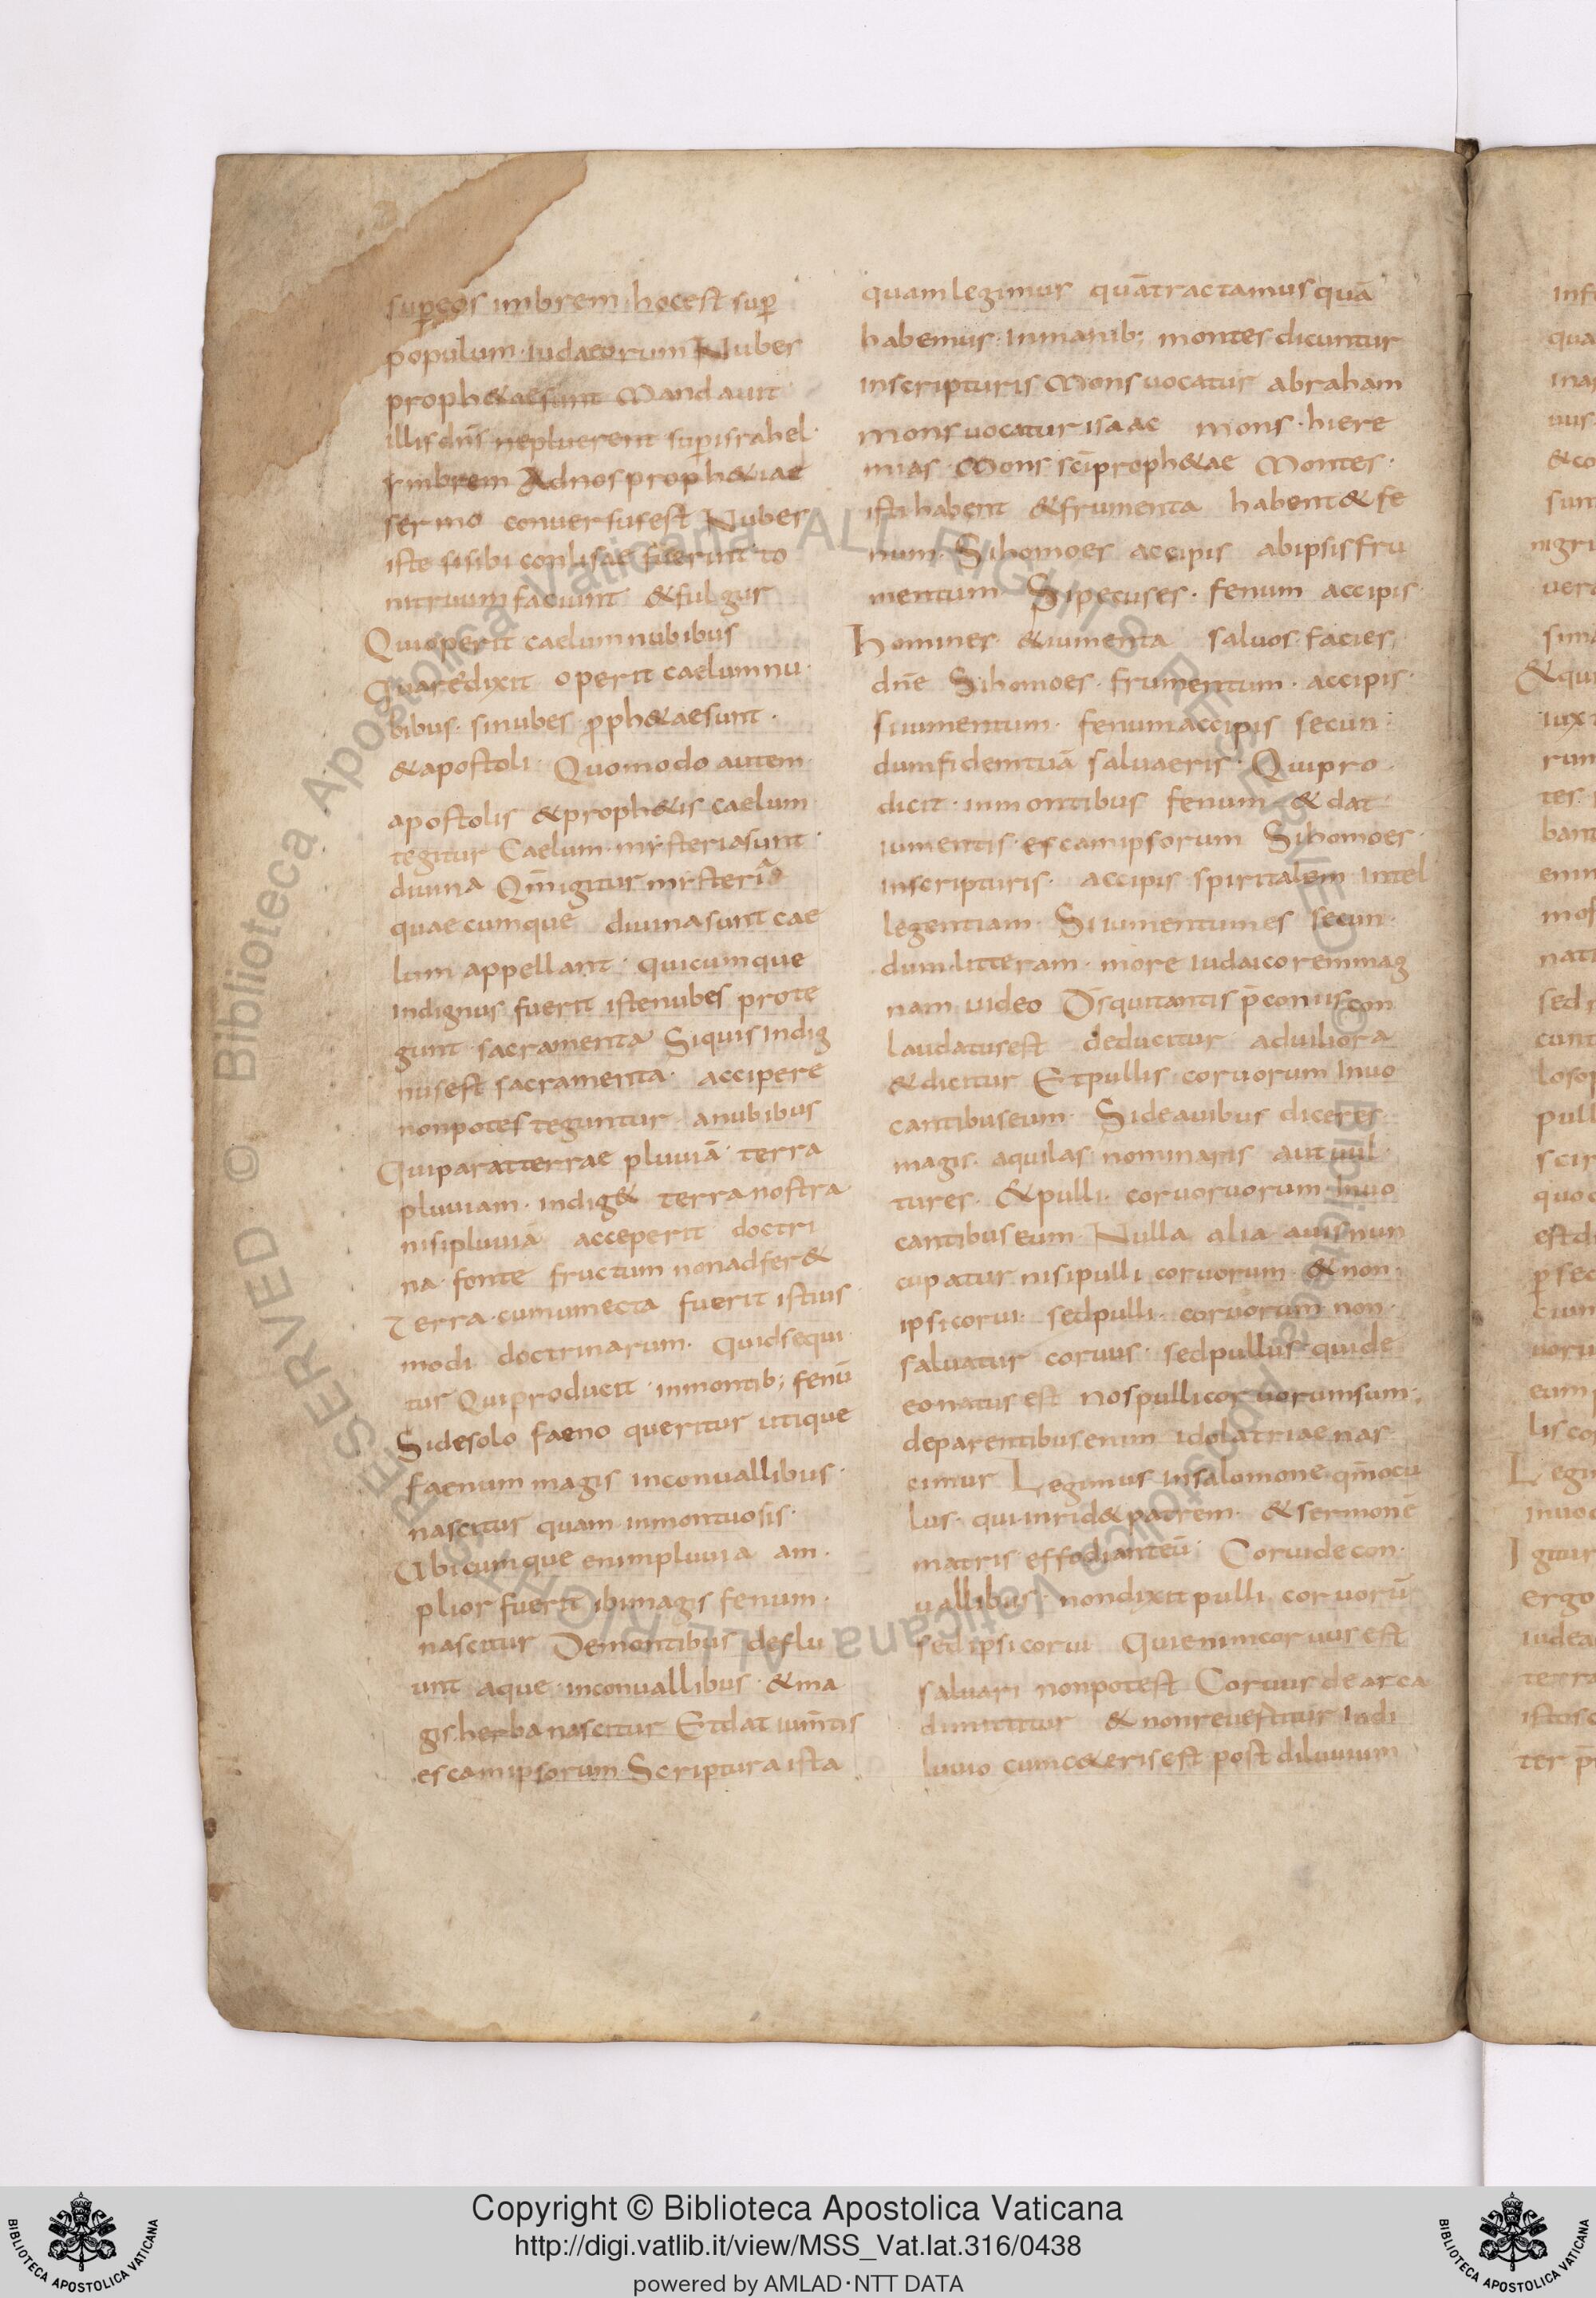 sup̄ eos imbrem hocest sup̄
populum· iudaeorum Nubes
proph&aesunt Mandauit
illis dn̄s nepluerent sup̄israhel·
ymbrem Adnos proph&iae
sermo conuersusest Nubes
iste sisibi conlisae fuerint to
nitruum faciunt &fulgur
Quioperit caelum nubibus
Quaredixit operit caelum nu·
bibus· sinubes p̄ph&aesunt·
&apostoli· Quomodo autem·
apostolis &proph&is caelum
tegitur Caelum· mysteriasunt·
diuina Qm̄igitur mysteria
quaecumque diuinasunt cae
lum appellant· quicumque
indignus fuerit istenubes prote
gunt· sacramenta Siquis indig
nusest sacramenta· accipere
nonpotes teguntur· anubibus
Quiparatterrae pluuiā· terra
pluuiam· indig& terranostra·
nisipluuiā acceperit doctri
na· fonte fructum nonadfer&
Terra· cumumecta fuerit istius
modi doctrinarum· quidsequi
tur Quiproducit· inmontib; fenū
Sidesolo faeno queritur utique
faenum magis inconuallibus·
nascitur quam inmontuosis·
Ubicumque enimpluuia am·
plior fuerit ibimagis fenum·
nascitur Demontibus deflu
unt aque· inconuallibus· &ma
gis herba nascitur Etdat ium̄tis
escamipsorum· Scriptura ista
quamlegimus quātractamus quā
habemus· inmanib; montes dicuntur
inscripturis Mons uocatur abraham
mons uocatur isaac mons· hiere
mias· Mons sc̄iproph&ae Montes·
isti habent &frumenta habent & fe
num· Sihomoes accipis abipsis fru
mentum Sipecuses· fenum accipis·
Homines· &iumenta saluos facies
dn̄e Sihomoes· frumentum· accipis·
siiumentum· fenum accipis secun·
dumfidemtuā saluaeris· Quipro·
dicit· inmontibus fenum· & dat
iumentis· escamipsorum Sihomoes·
inscripturis· accipis spiritalem intel
legentiam· Siiumentumes secun·
dum· litteram· more iudaico remmag
nam uideo Dsquitantis p̄coniis con
laudatusest deducitur aduiliora
&dicitur Etpullis coruorum inuo
cantibuseum· Sideauibus diceres·
magis· aquilas nominaris aut uul·
tures· &pulli· coruoruorum inuo
cantibus eum· Nulla alia auisnun
cupatur nisipulli coruorum· & non·
ipsicorui· sedpulli· coruorum non·
saluatur coruus· sedpullus· quide
eonatus est nospullicoruorumsum·
deparentibusenim idolatriae nas
cimur Legimus insalomone· qm̄ocu
lus· quiinrid& patrem· & sermonē
matris· effodianteū· Coruidecon·
uallibus· nondixit pulli coruorū
sed ipsi corui· Quienimcoruus est
saluari nonpotest Coruus de arca
dimittitur & nonreuertitur Indi
luuio cumc&eris est post diluuium